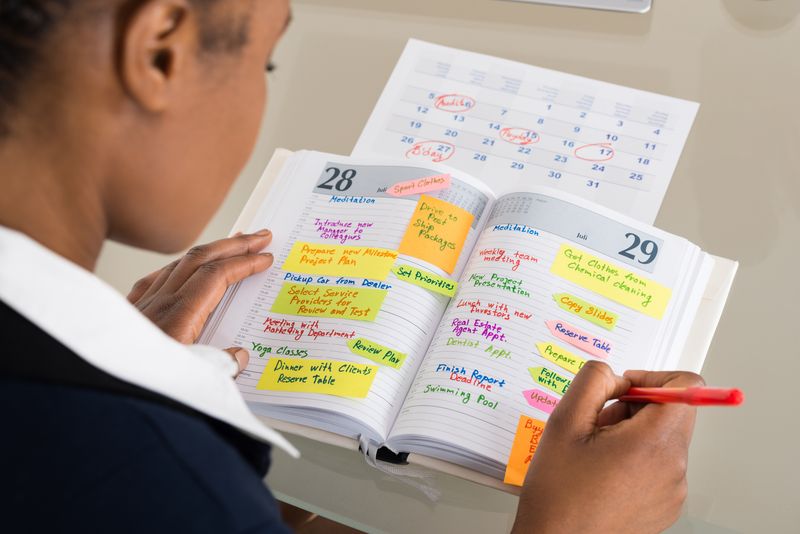 5
Audit 6
7
1
2
3
4
8
9
10
11
12
13
14
15
16
17
18
19
20
21
22
23
24
25
26
27
B'day
28
29
30
31
28
Juli
Sport Clothes
Meditation
Drive to
Post
Ship
Packages
Introduce new
Manager to
Colleagues
Prepare new Milestone
Project Plan
Set Priorities
Pickup Car from Dealer
Select Service
Providers for
Review and Test
Meeting with
Marketing Department
Review Plan
Yoga Classes
Dinner with Clients
Reserve Table
Juli
29
Meditation
Weekly team
meeting
Got Clothes from
Chemical cleaning
New Project
Presentation
Copy Slides
Lunch with new
Investors
Reserve Table
Real Estate
Agent Appt.
Dentist Appt.
Prepare
Follow
with
Finish Report
Deadline
Update
Swimming Pool